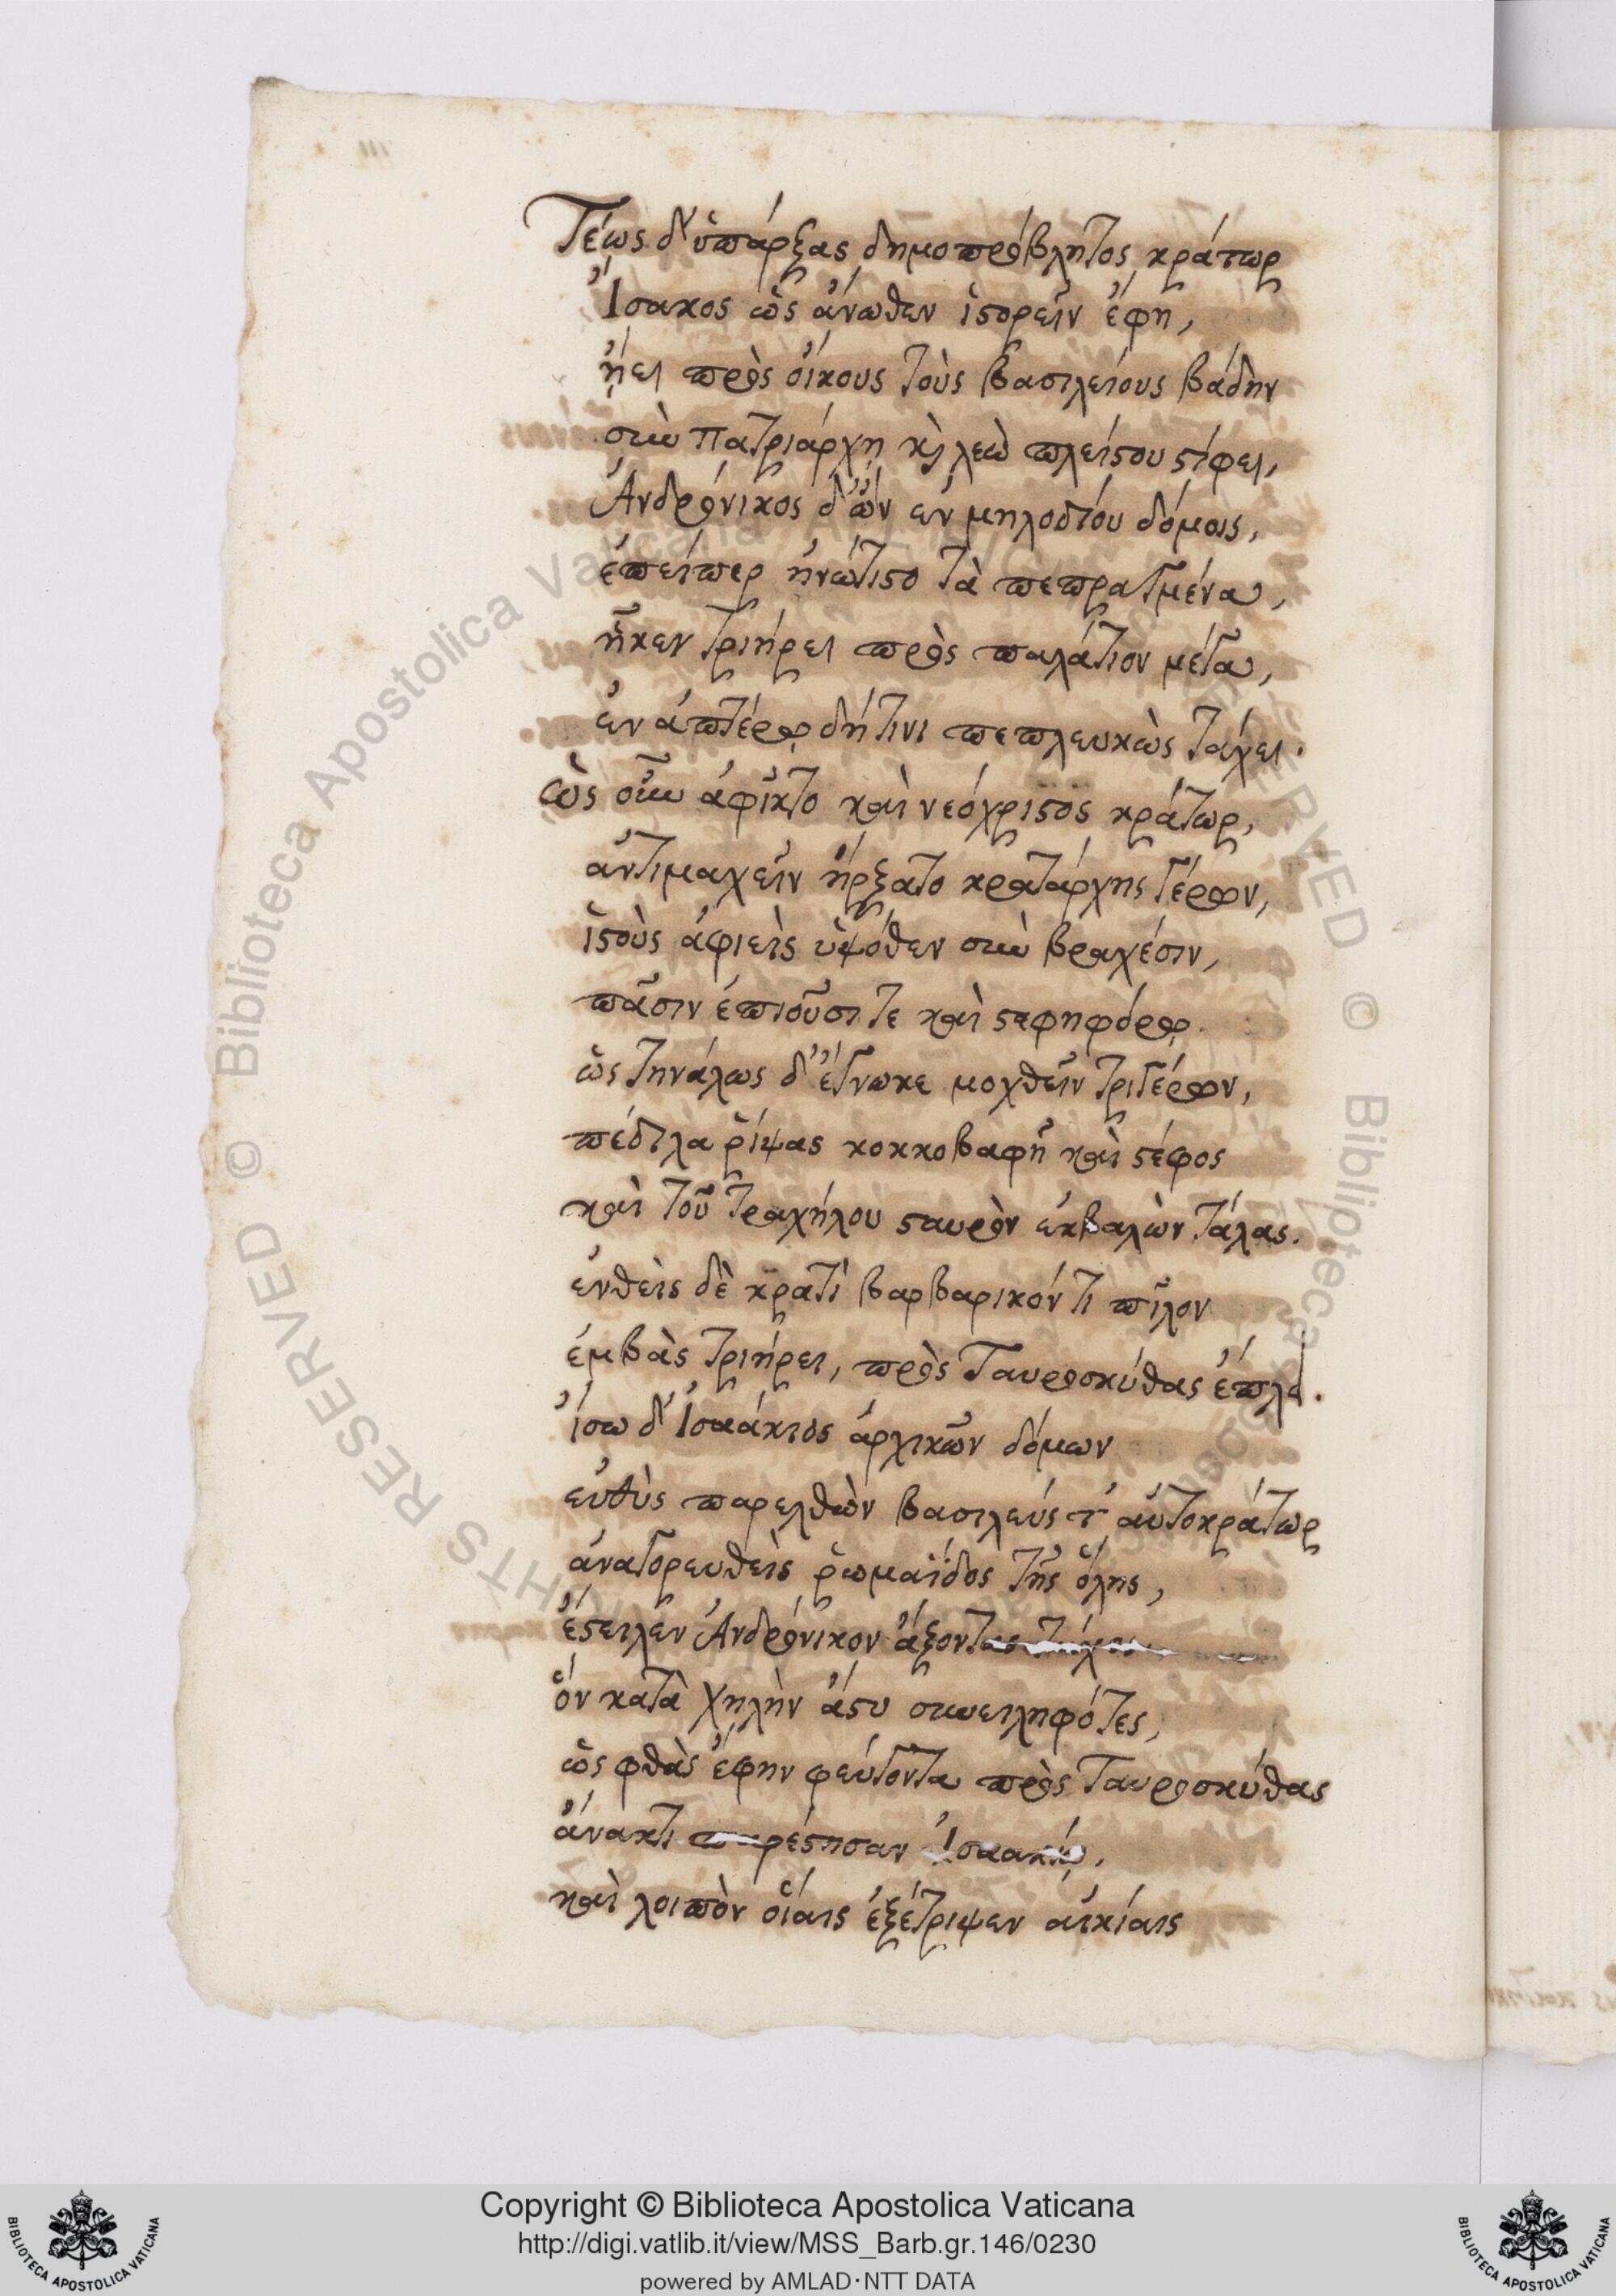 Τέως δ' ὑπάρξας δημοπρόβλητος κράτωρ
Ἴσακος ὡς ἄνωθεν ἱστορεῖν ἔφη,
ᾔει πρὸς οἴκους τοὺς βασιλείους βάδην
σὺν πατριάρχῃ καὶ λεὼ πλείστου στίφει,
Ἀνδρόνικος δ' ὢν ἐν μηλουδίου δόμοις,
ἐπείπερ ἠνώτιστο τὰ πεπραγμένα,
ἧκεν τριήρει πρὸς παλάτιον μέγα,
ἐν ἀπτέρῳ δή τινι πεπλευκὼς τάχει.
ὡς οὖν ἀφῖκτο καὶ νεόχριστος κράτωρ,
ἀντιμαχεῖν ἤρξατο κρατάρχης γέρων,
ἰστοὺς ἀφιεὶς ὑψόθεν σὺν βραχέσιν,
πᾶσιν ἐπιοῦσί τε καὶ στεφηφόρῳ.
ὡς τηνάλως δ' ἔγνωκε μοχθεῖν τριγέρων,
πέδιλα ῥίψας κοκκοβαφῆ καὶ στέφος
καὶ τοῦ τραχήλου σταυρὸν ἐκβαλὼν τάλας.
ἐνθεὶς δὲ κρατὶ βαρβαρικόν τι πῖλον
ἐμβὰς τριήρει, πρὸς Ταυροσκύθας ἔπλει.
ἴσω δ' Ἰσαάκιος ἀρχικῶν δόμων
εὐθὺς παρελθὼν βασιλεύς τ' αὐτοκράτωρ
ἀναγορευθεὶς ῥωμαΐδος τῆς ὅλης,
ἔστειλεν Ἀνδρόνικον ἄξοντας τάχος
ὃν κατὰ Χηλὴν ἄστυ συνειληφότες,
ὡς φθὰς ἔφην φεύγοντα πρὸς Ταυροσκύθας
ἄνακτι παρέστησαν Ἰσαακίῳ,
καὶ λοιπὸν οἵαις ἐξέτριψεν αἰκίαις
Copyright © Biblioteca Apostolica Vaticana
http://digi.vatlib.it/view/MSS_Barb.gr.146/0230
powered by AMLAD·NTT DATA